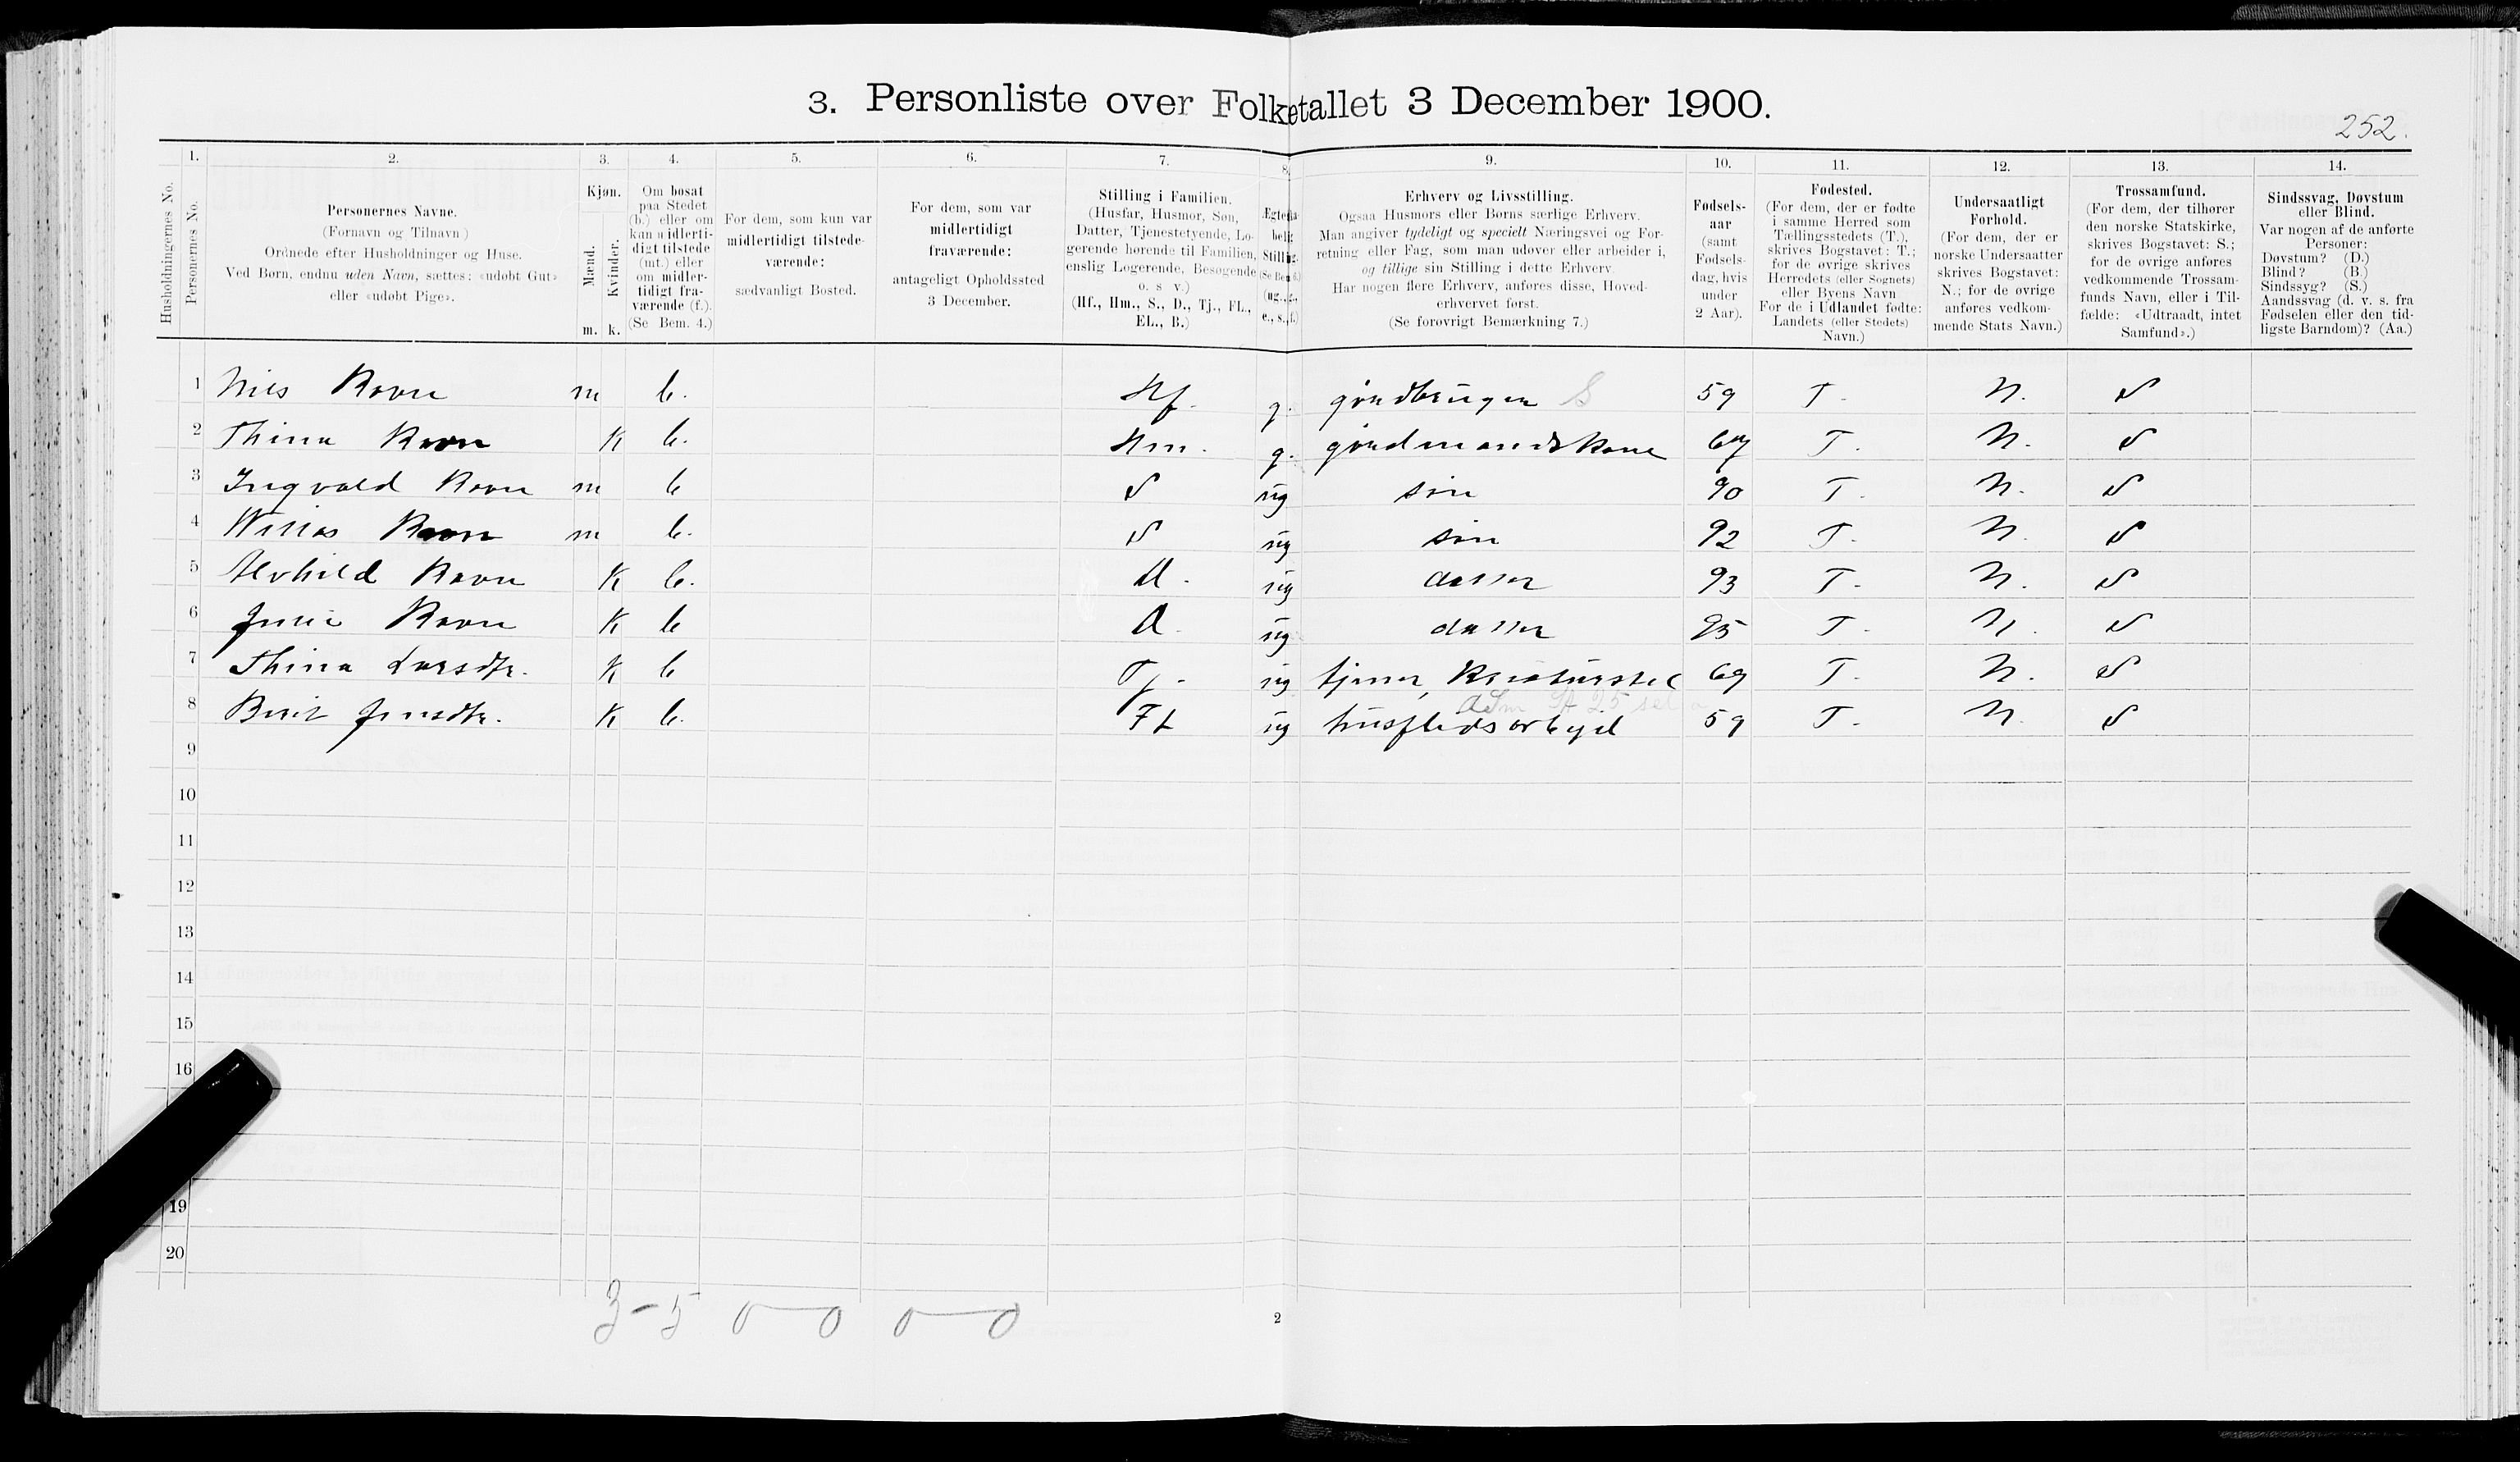 3. Personliste over Folketallet 3 December 1900.
252.
1. 2. 3. 4. 5. 6. 7. 8. 9. 10. 11. 12. 13. 14.
Husholdningernes No.
Personernes No.
Personernes Navne.
(Fornavn og Tilnavn)
Ordnede efter Husholdninger og Huse.
Ved Børn, endnu uden Navn, sættes: «udøbt Gut»
eller «udøbt Pige».
Kjøn.
Mænd.
Kvinder.
m. k.
Om bosat
paa Stedet
(b.) eller om
kun midlerti-
digt tilstede
(mt.) eller
om midler-
tidigt fra-
værende (f.).
(Se Bem. 4.)
For dem, som kun var
midlertidigt tilstede-
værende:
sædvanligt Bosted.
For dem, som var
midlertidigt
fraværende:
antageligt Opholdssted
3 December.
Stilling i Familien.
(Husfar, Husmor, Søn,
Datter, Tjenestetyende, Lo-
gerende hørende til Familien,
enslig Logerende, Besøgende
o. s. v.)
(Hf., Hm., S., D., Tj., FL.,
EL., B.)
Erhverv og Livsstilling.
Ogsaa Husmors eller Børns særlige Erhverv.
Man angiver tydeligt og specielt Næringsvei og For-
retning eller Fag, som man udøver eller arbeider i,
og tillige sin Stilling i dette Erhverv.
Har nogen flere Erhverv, anføres disse, Hoved-
erhvervet først.
(Se forøvrigt Bemærkning 7.)
Fødsels-
aar
(samt
Fødsels-
dag, hvis
under
2 Aar).
Fødested.
(For dem, der er fødte
i samme Herred som
Tællingsstedets (T.),
skrives Bogstavet: T.;
for de øvrige skrives
Herredets (eller Sognets)
eller Byens Navn
For de i Udlandet fødte:
Landets (eller Stedets)
Navn.)
Undersaatligt
Forhold.
(For dem, der er
norske Undersaatter
skrives Bogstavet:
N.; for de øvrige
anføres vedkom-
mende Stats Navn.)
Trossamfund.
(For dem, der tilhører
den norske Statskirke,
skrives Bogstavet: S.;
for de øvrige anføres
vedkommende Trossam-
funds Navn, eller i Til-
fælde: «Udtraadt, intet
Samfund».)
Sindssvag, Døvstum
eller Blind.
Var nogen af de anførte
Personer:
Døvstum? (D.)
Blind? (B.)
Sindssyg? (S.)
Aandssvag (d. v. s. fra
Fødselen eller den tid-
ligste Barndom)? (Aa.)
1 Nils Ravn m b. Hf. g. gårdbruger S 59 T. N. S
2 Thina Ravn k b. Hm. g. gårdmandskone T. N. S
3 Ingvald Ravn m b S ug søn 90 T. N. S
4 Ravn m b. S ug søn 92 T. N. S
5 Alvhild Ravn k b. D. ug datter 93 T. N. S
6 Ravn k b D. ug datter 95 T. N. S
7 Thina Larsdtr. k b Tj. ug tjener, 69 T. N. S
8 Berit Jensdtr. k b. FL ug husflidsarbejd 59 T. N. S
9
10
11
12
13
14
15
16
19
20
3 - 5 0 0 0 0
2